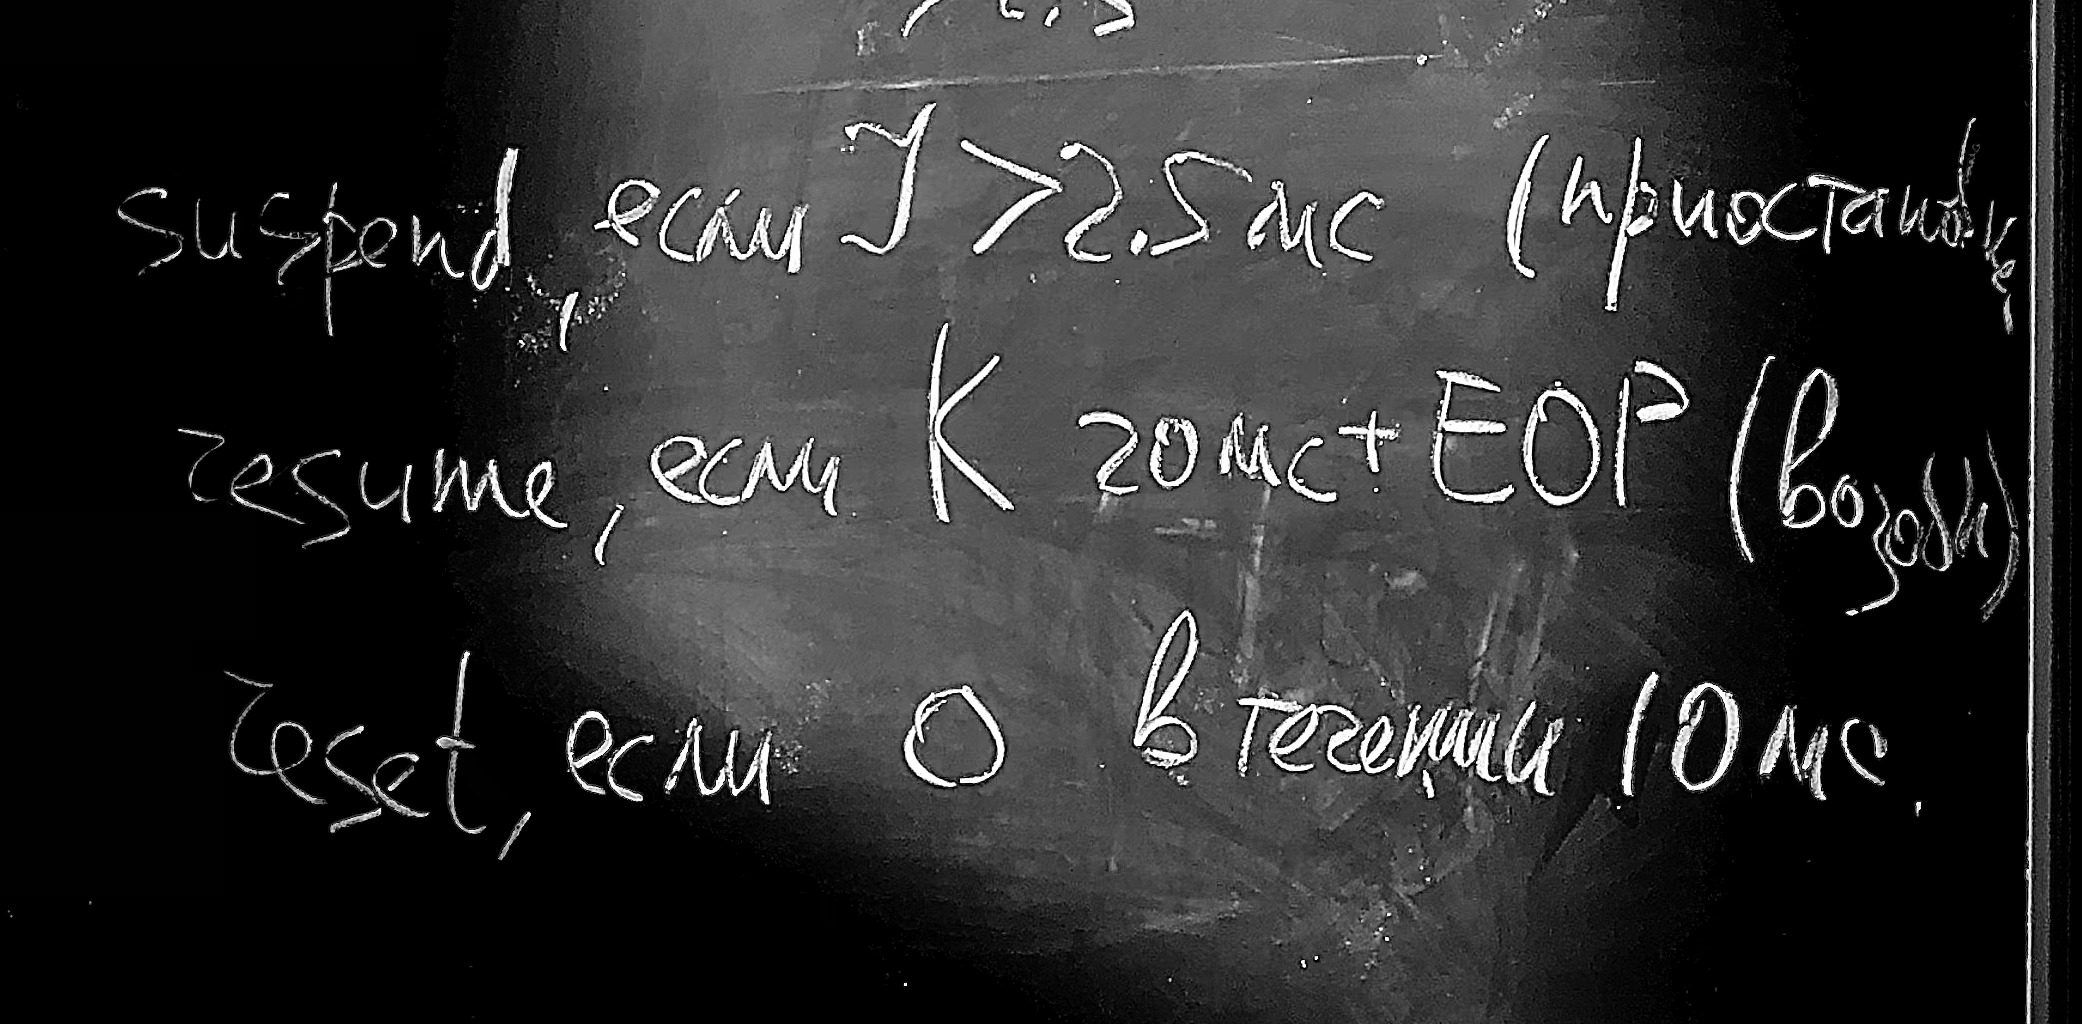 suspend, если J > 2.5 мс (приостановка
resume, если K 20 мс + EOP (возобн)
reset, если 0 в течении 10 мс.